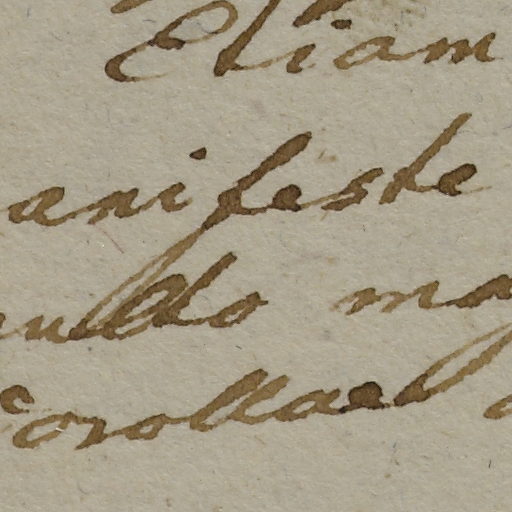 Etiam
anifeste
multo ma
Corollae